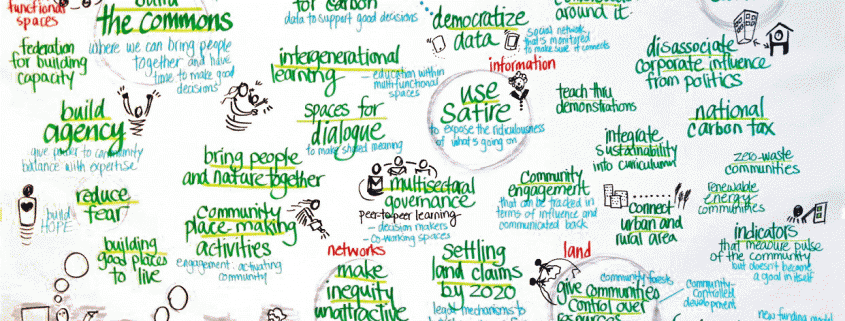 functional
spaces
build
the commons
where we can bring people
together and have
time to make good
decisions
federation
for building
capacity
build
agency
give power to community
balance with expertise
build
HOPE
reduce
fear
building
good places
to live
for carbon
data to support good decisions
intergenerational
learning
– education within
multifunctional
spaces
spaces for
dialogue
to make shared meaning
bring people
and nature together
community
place-making
activities
engagement: activating
community
networks
make
inequity
unattractive
multisectoral
governance
peer to peer learning
– decision makers
– co-working spaces
democratize
data
social network
that's monitored
to make sure it connects
information
use
satire
to expose the ridiculousness
of what's going on
settling
land claims
by 2020
mechanisms to
around it
teach thru
demonstrations
integrate
sustainability
into curriculum
community
engagement
that can be tracked in
terms of influence and
communicated back
connect
urban and
rural area
land
community forests
give communities
control over
resources
community-
controlled
development
disassociate
corporate influence
from politics
national
carbon tax
zero-waste
communities
renewable
energy
communities
indicators
that measure pulse
of the community
but doesn't become
a goal in itself
new funding model